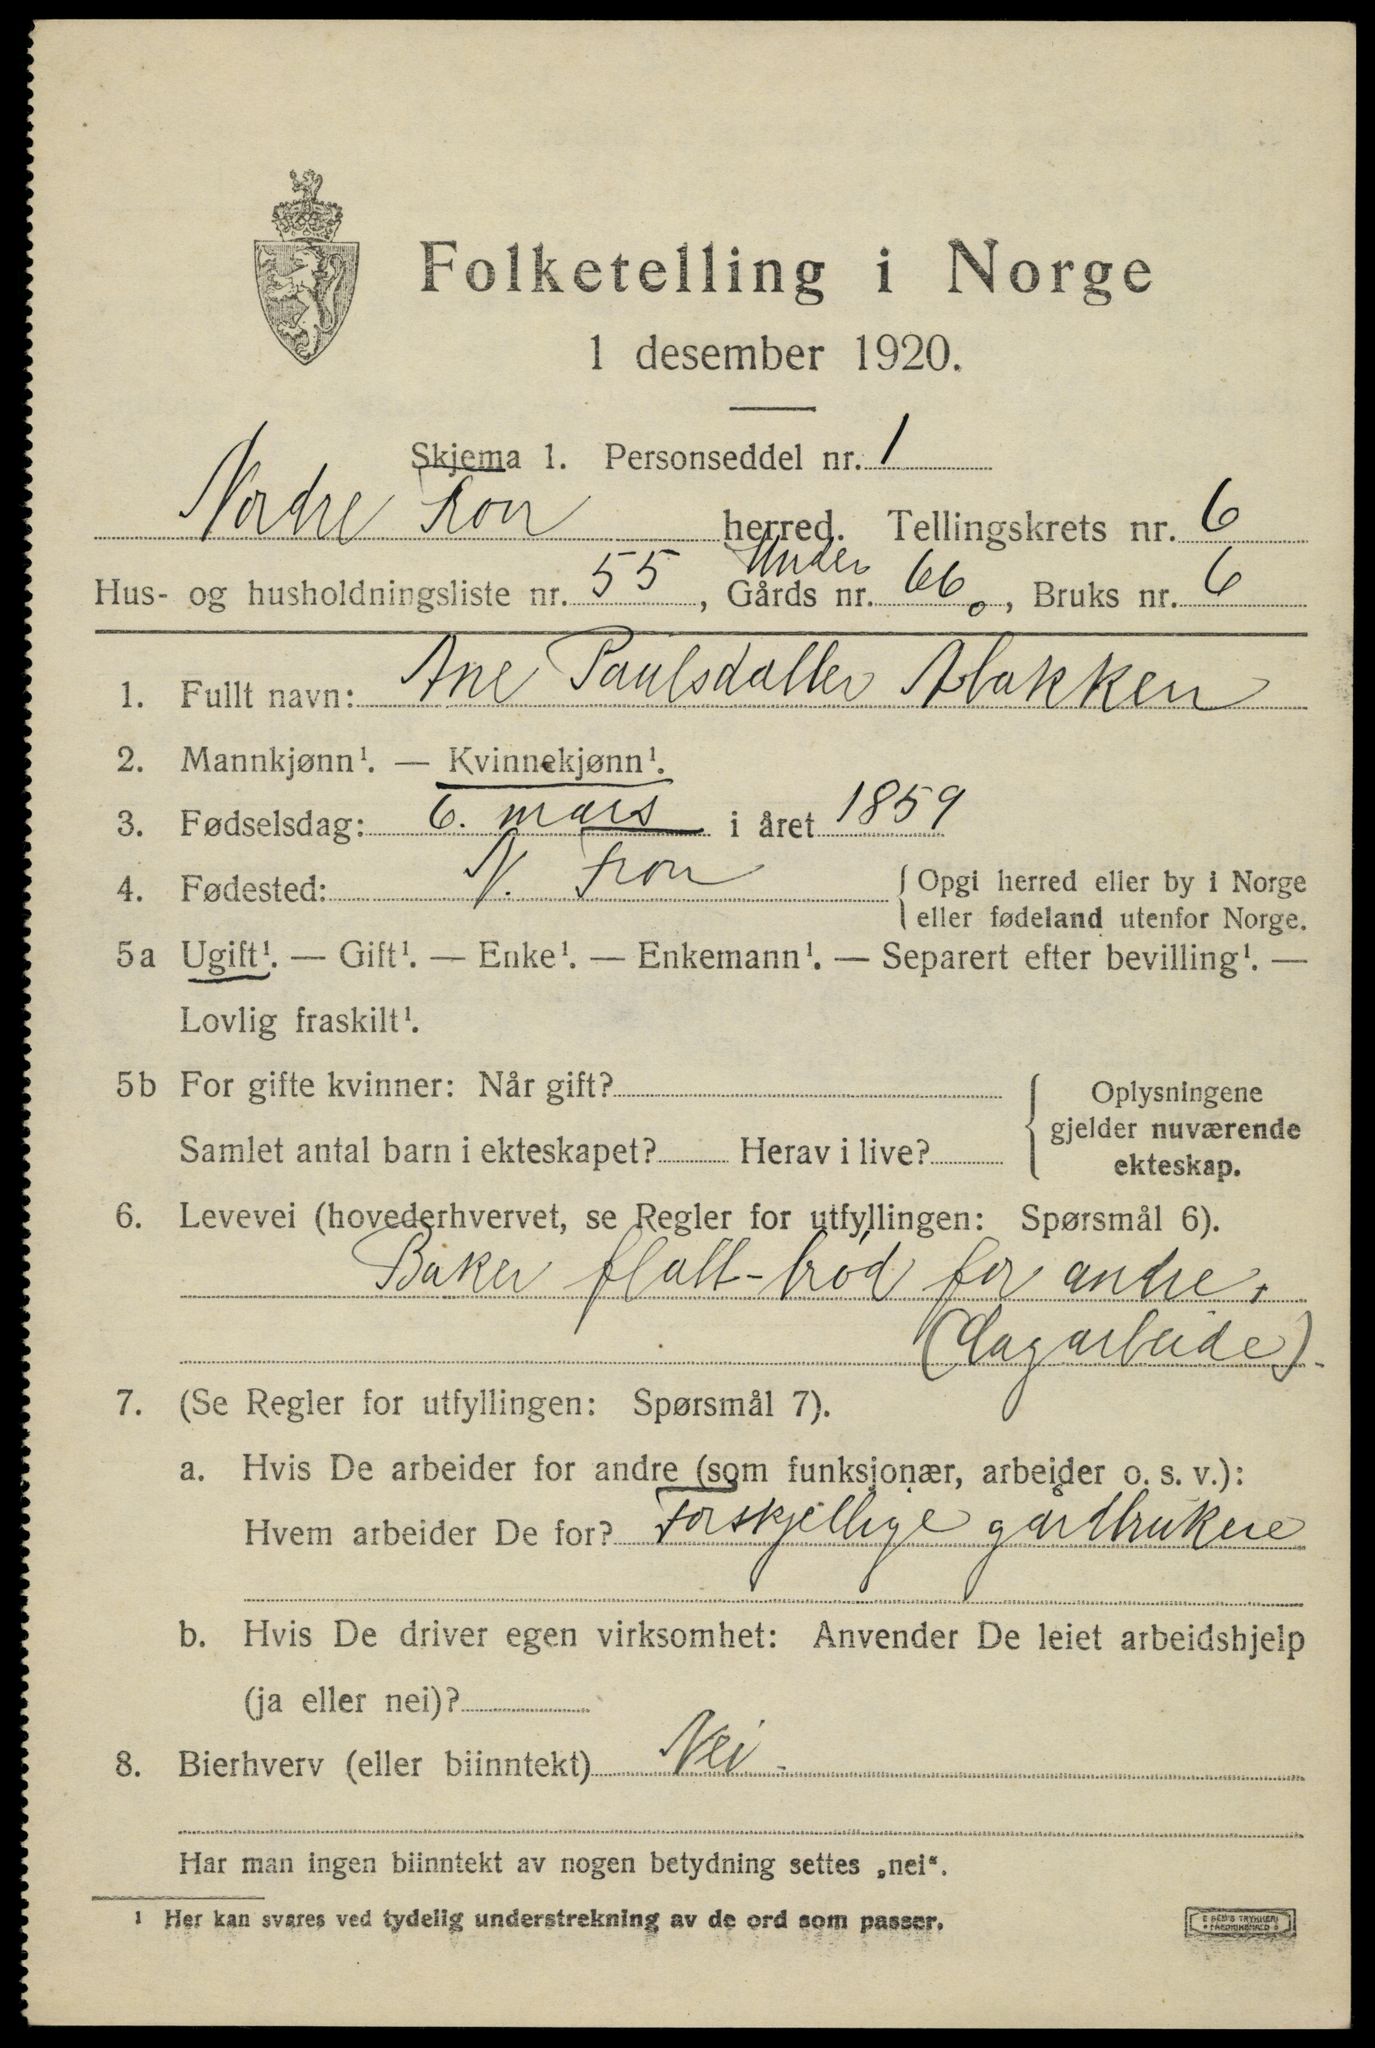 Folketelling i Norge
1 desember 1920.
Skjema 1. Personseddel nr. 1
Nordre Fron herred. Tellingskrets nr. 6
Hus- og husholdningsliste nr. 55, Under Gårds nr. 66., Bruks nr. 6
1. Fullt navn: Ane Paulsdatter
2. Mannkjønn¹. — Kvinnekjønn¹.
3. Fødselsdag: 6. mars i året 1859
4. Fødested: N. Fron { Opgi herred eller by i Norge
eller fødeland utenfor Norge.
5a Ugift¹. — Gift¹. — Enke¹. — Enkemann¹. — Separert efter bevilling¹. —
Lovlig fraskilt¹.
5b For gifte kvinner: Når gift?
Samlet antal barn i ekteskapet? Herav i live?
Oplysningene
gjelder nuværende
ekteskap.
6. Levevei (hovederhvervet, se Regler for utfyllingen: Spørsmål 6).
Baker flatt-brød for andre,
(dagarbeide).
7. (Se Regler for utfyllingen: Spørsmål 7).
a. Hvis De arbeider for andre (som funksjonær, arbeider o. s. v.):
Hvem arbeider De for? Forskjellige gårdbrukere
b. Hvis De driver egen virksomhet: Anvender De leiet arbeidshjelp
(ja eller nei)?
8. Bierhverv (eller biinntekt) Nei.
Har man ingen biinntekt av nogen betydning settes „nei“.
¹ Her kan svares ved tydelig understrekning av de ord som passer.